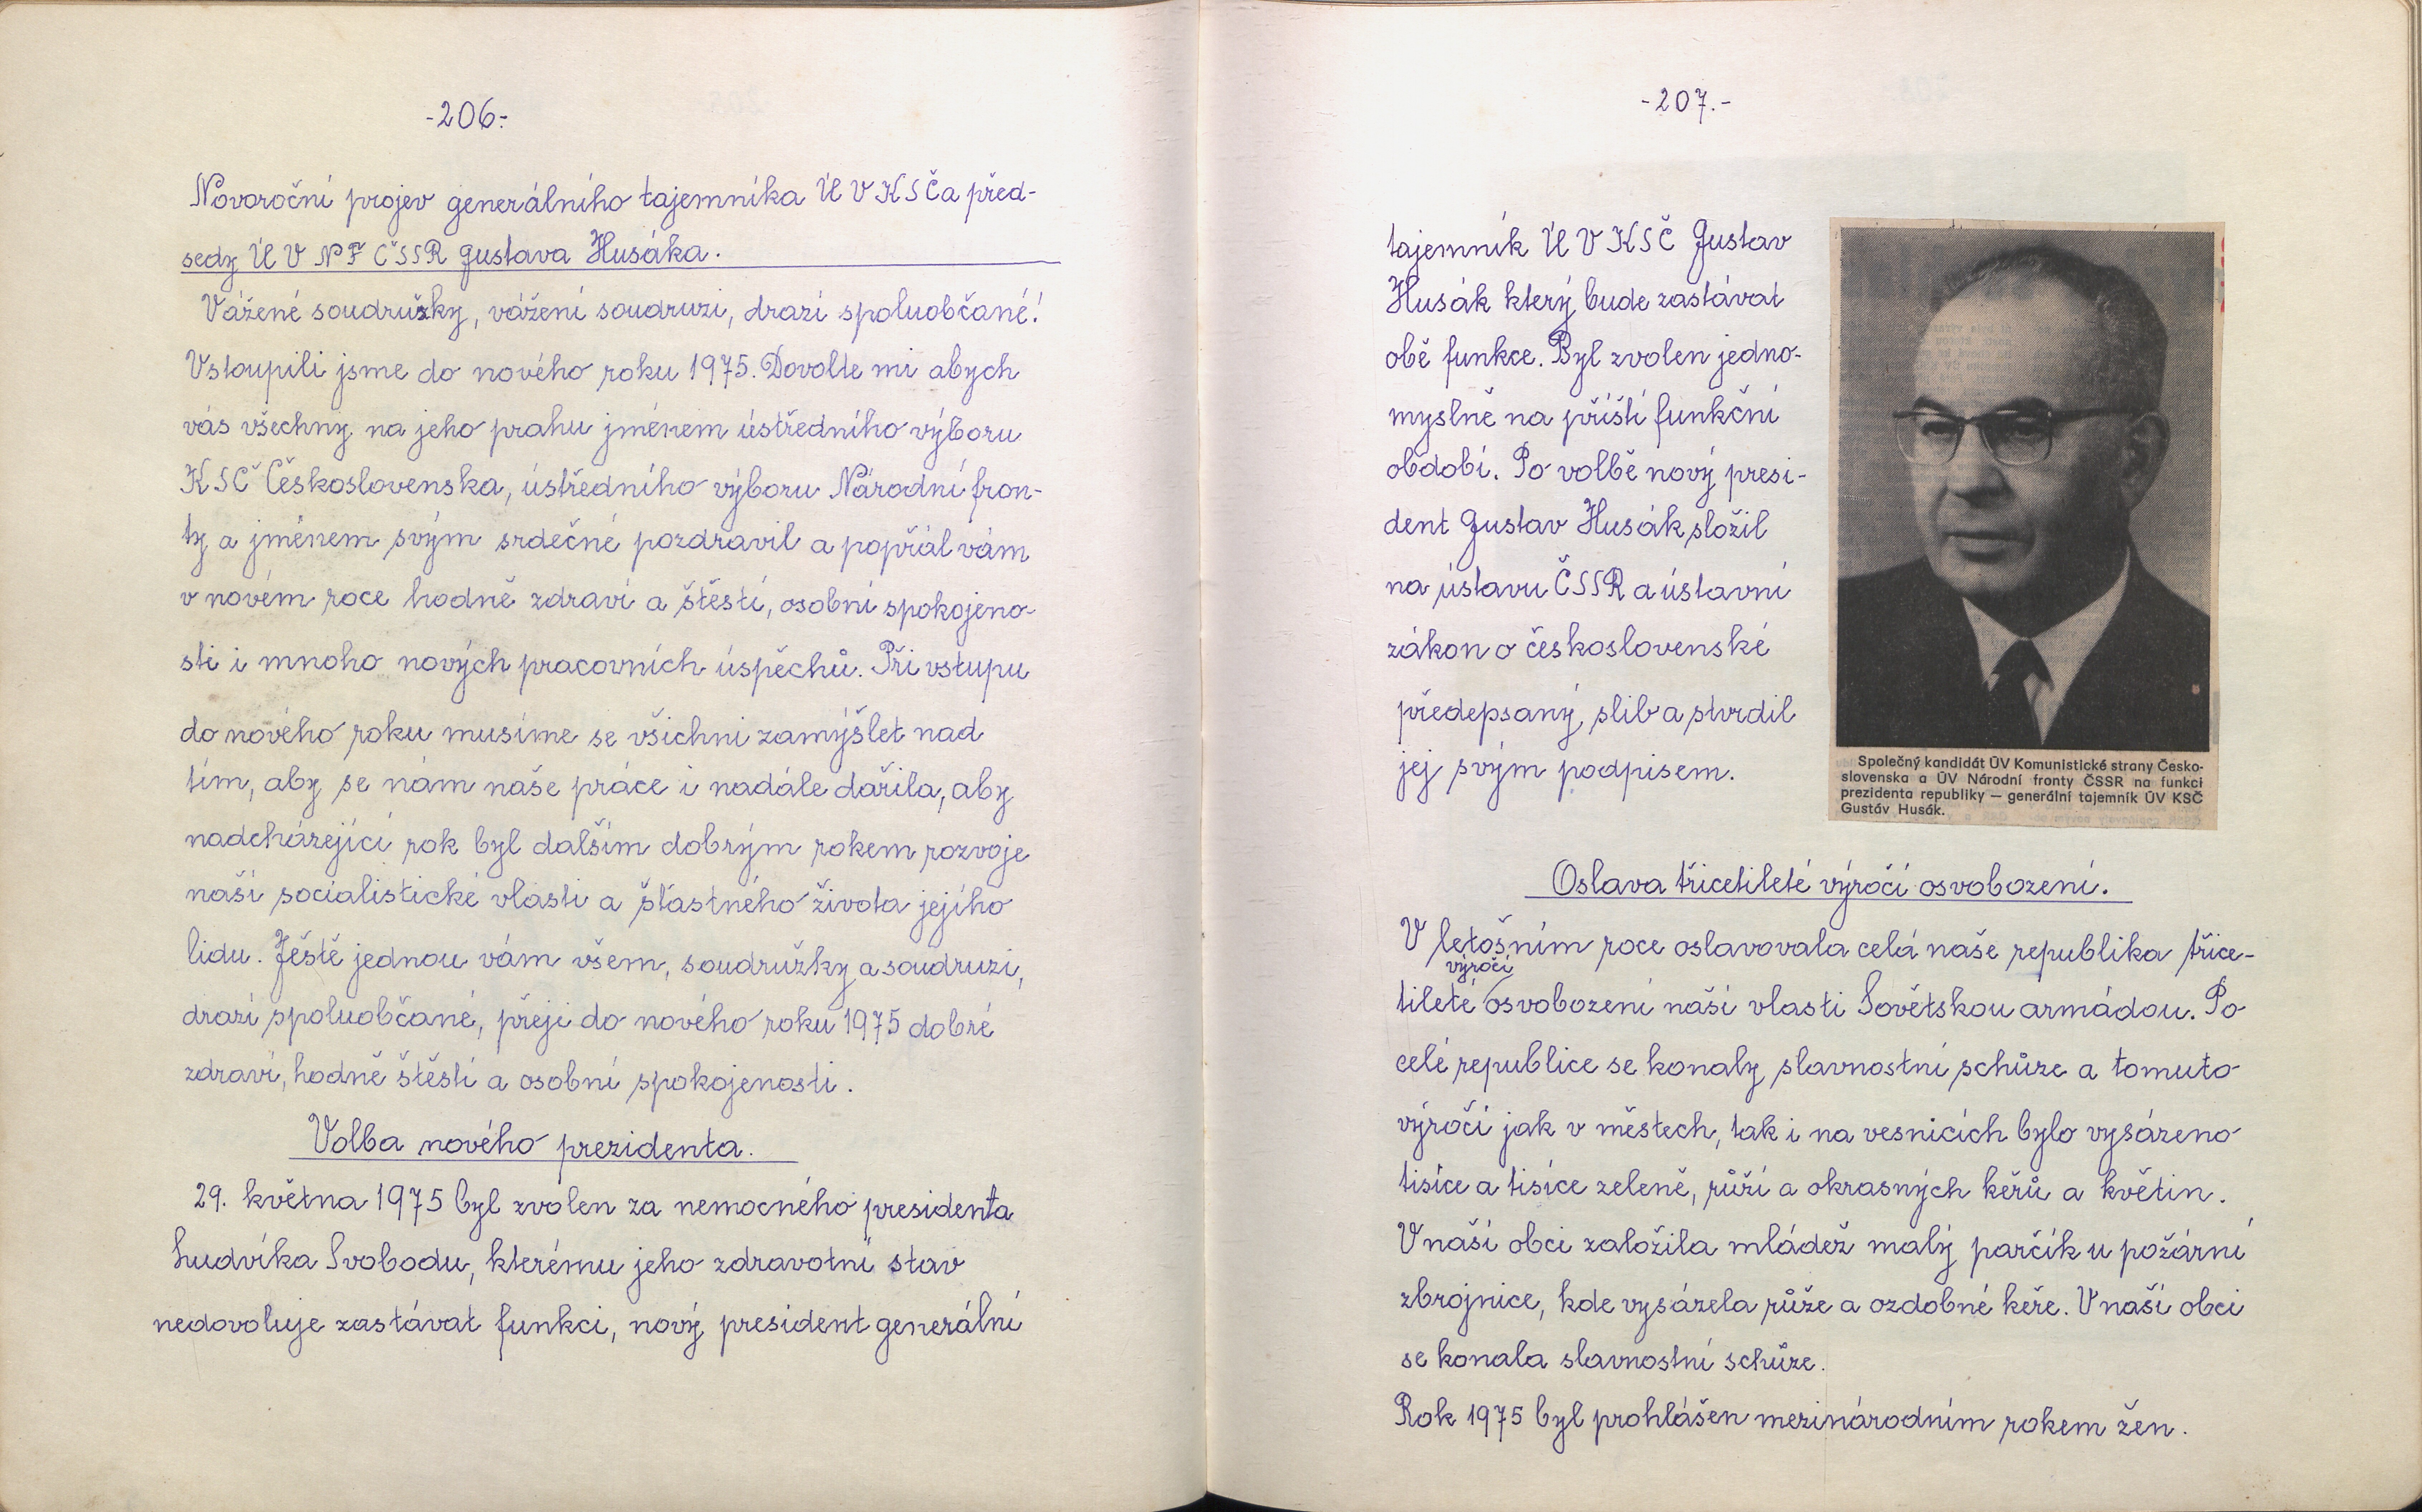 -206-
Novoroční projev generálního tajemníka ÚV KSČ a před-
sedy ÚV NF ČSSR Gustava Husáka.
Vážené soudružky, vážení soudruzi, drazí spoluobčané!
Vstoupili jsme do nového roku 1975. Dovolte mi abych
vás všechny na jeho prahu jménem ústředního výboru
KSČ Československa, ústředního výboru Národní fron-
ty a jménem svým srdečné pozdravil a popřál vám
v novém roce hodně zdraví a štěstí, osobní spokojeno-
sti i mnoho nových pracovních úspěchů. Při vstupu
do nového roku musíme se všichni zamýšlet nad
tím, aby se nám naše práce i nadále dařila, aby
nadcházející rok byl dalším dobrým rokem rozvoje
naší socialistické vlasti a šťastného života jejího
lidu. Ještě jednou vám všem, soudružky a soudruzi,
drazí spoluobčané, přeji do nového roku 1975 dobré
zdraví, hodně štěstí a osobní spokojenosti.
Volba nového prezidenta.
29. května 1975 byl zvolen za nemocného presidenta
Ludvíka Svobodu, kterému jeho zdravotní stav
nedovoluje zastávat funkci, nový president generální
-207.-
tajemník ÚV KSČ Gustav
Husák který bude zastávat
obě funkce. Byl zvolen jedno-
myslně na příští funkční
období. Po volbě nový presi-
dent Gustav Husák složil
na ústavu ČSSR a ústavní
zákon o československé
předepsaný slib a stvrdil
jej svým podpisem.
Společný kandidát ÚV Komunistické strany Česko-
slovenska a ÚV Národní fronty ČSSR na funkci
prezidenta republiky — generální tajemník ÚV KSČ
Gustáv Husák.
Oslava třicetileté výročí osvobození.
V letošním roce oslavovala celá naše republika třice-
výročí
tileté osvobození naší vlasti Sovětskou armádou. Po
celé republice se konaly slavnostní schůze a tomuto
výročí jak v městech, tak i na vesnicích bylo vysázeno
tisíce a tisíce zeleně, růží a okrasných keřů a květin.
V naší obci založila mládež malý parčík u požární
zbrojnice, kde vysázela růže a ozdobné keře. V naší obci
se konala slavnostní schůze.
Rok 1975 byl prohlášen mezinárodním rokem žen.